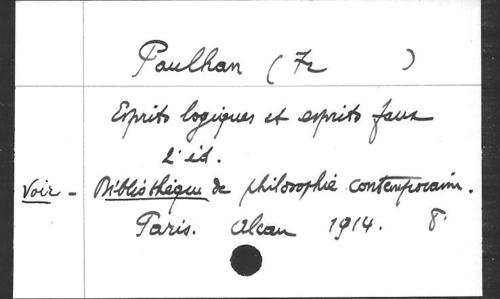 Paulhan (Fr )
Esprits logiques et esprits faux
2e éd.
Voir - Bibliothèque de philosophie contemporaine.
Paris. Alcan 1914. 8°